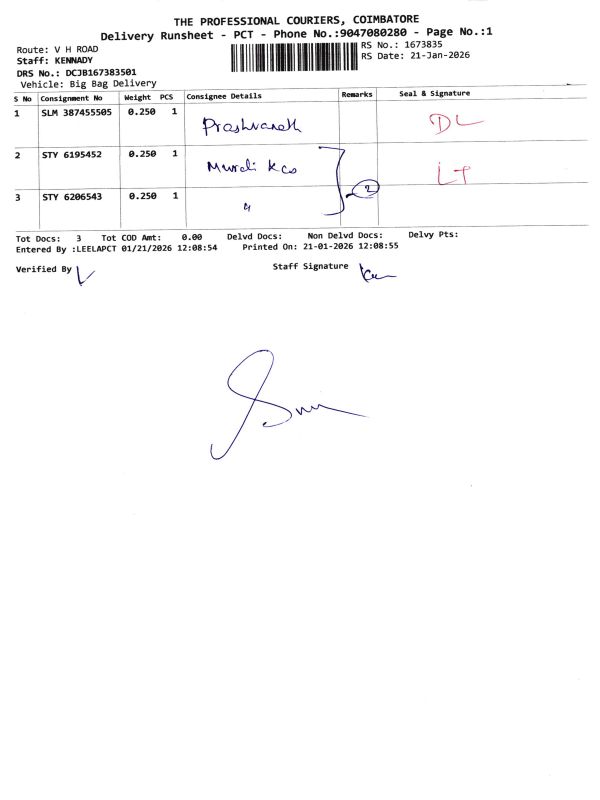 THE PROFESSIONAL COURIERS, COIMBATORE
Delivery Runsheet - PCT - Phone No.:9047080280 - Page No.:1
Route: V H ROAD
RS No.: 1673835
Staff: KENNADY
RS Date: 21-Jan-2026
DRS No.: DCJB167383501
Vehicle: Big Bag Delivery
S No Consignment No Weight PCS Consignee Details Remarks Seal & Signature
1 SLM 387455505 0.250 1 Prashvanath DL
2 STY 6195452 0.250 1 Murali & Co LT
3 STY 6206543 0.250 1 " 2
Tot Docs: 3 Tot COD Amt: 0.00 Delvd Docs: Non Delvd Docs: Delvy Pts:
Entered By :LEELAPCT 01/21/2026 12:08:54 Printed On: 21-01-2026 12:08:55
Verified By
Staff Signature